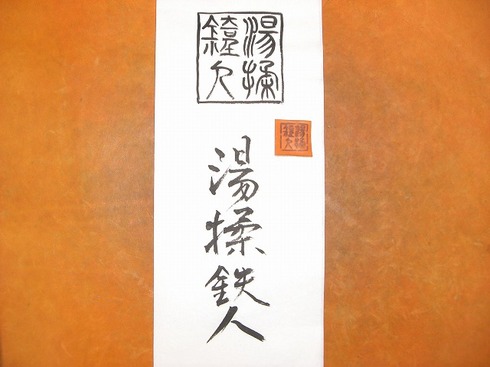 湯揉
鐵人
湯揉
鐵人
湯揉鉄人